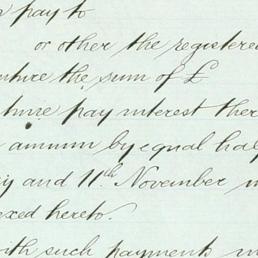 pay to
or other the registered
the sum of £
pay interest
annum by equal
and 11th November
hereto.
such payments